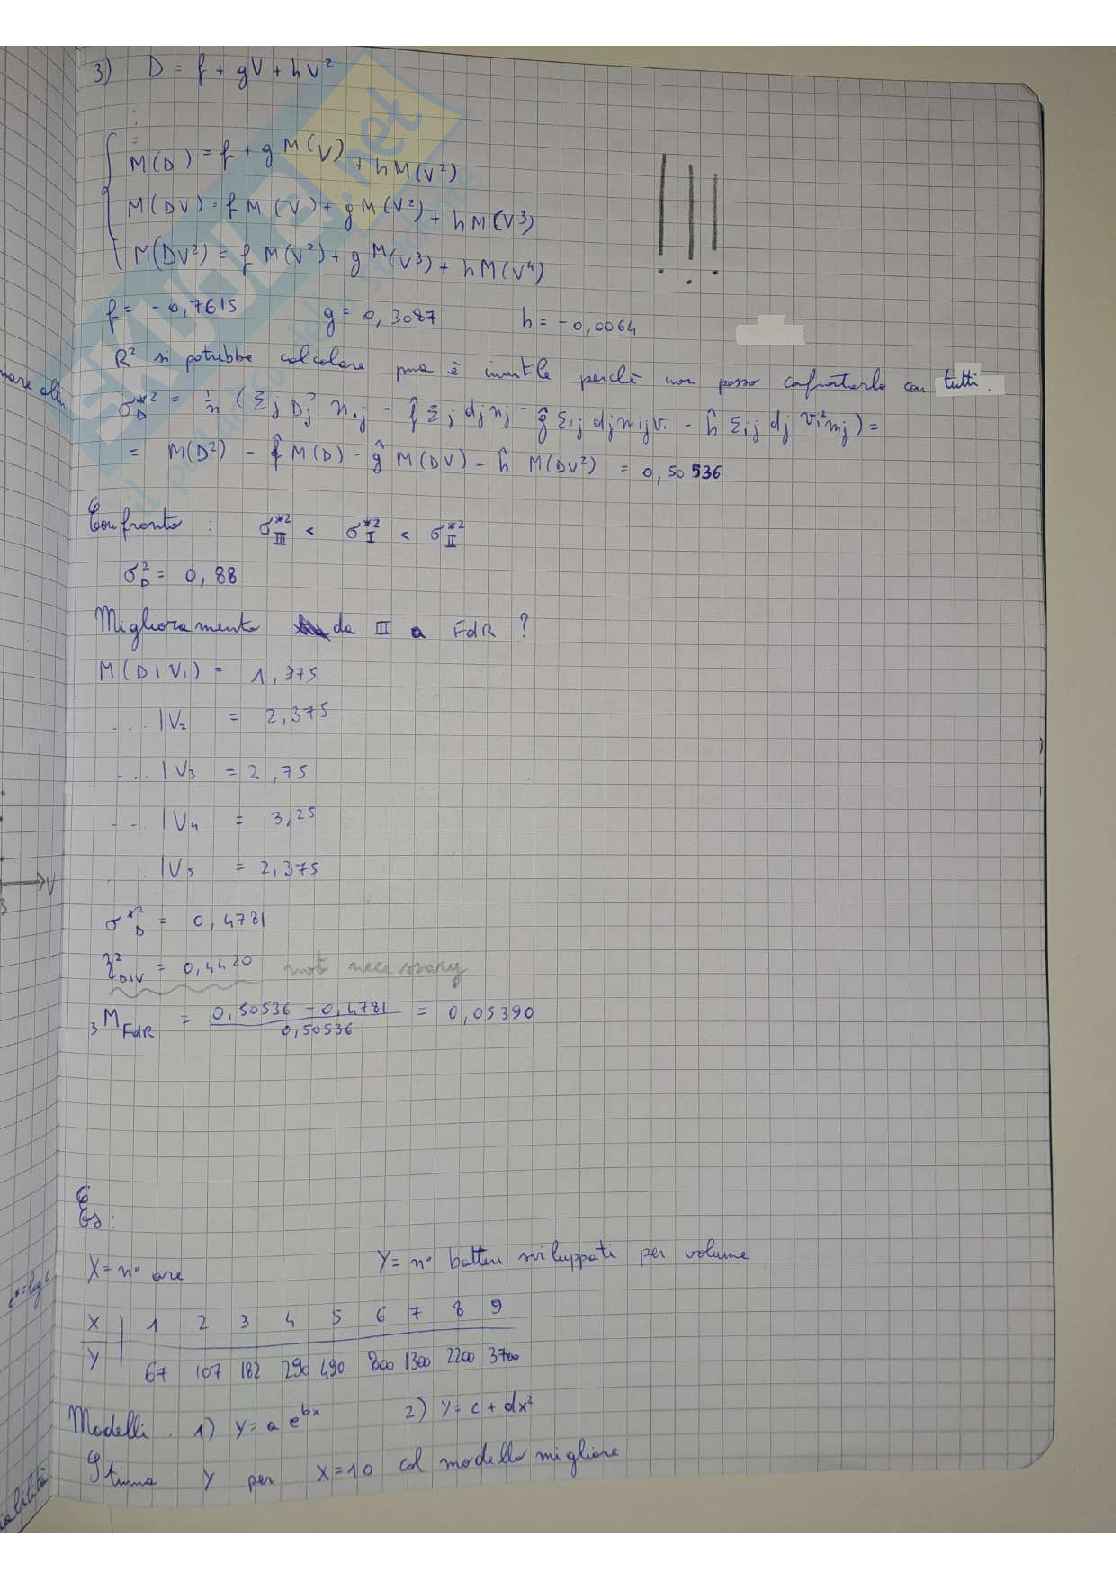 3) D = f + gV + hV²
M(D) = f + g M(V) + h M(V²)
M(DV) = f M(V) + g M(V²) + h M(V³)
M(DV²) = f M(V²) + g M(V³) + h M(V⁴)
f = -0,7615 g = 0,3087 h = -0,0064
R² si potrebbe calcolare ma è inutile perchè non posso confrontarlo con tutti.
σ*²_D = 1/n (Σj Dj² n.j - f̂ Σj dj nj - ĝ Σij dj nij vi - ĥ Σij dj vi² nj) =
= M(D²) - f̂ M(D) - ĝ M(DV) - ĥ M(DV²) = 0,50536
Confronto : σ*²_III < σ*²_I < σ*²_II
σ²_D = 0,88
Miglioramento da III a FdR ?
M(D|V₁) = 1,375
... |V₂ = 2,375
... |V₃ = 2,75
... |V₄ = 3,25
|V₅ = 2,375
σ*²_D = 0,4781
η²_D|V = 0,4420 not necessary
₃M_FdR = (0,50536 - 0,4781) / 0,50536 = 0,05390
Es:
X = n° ore Y = n° batteri sviluppati per volume
X | 1 2 3 4 5 6 7 8 9
Y | 67 107 182 290 490 800 1300 2200 3700
Modelli. 1) Y = a e^bx 2) Y = c + dx²
Stima Y per X=10 col modello migliore
SKUOLA.net